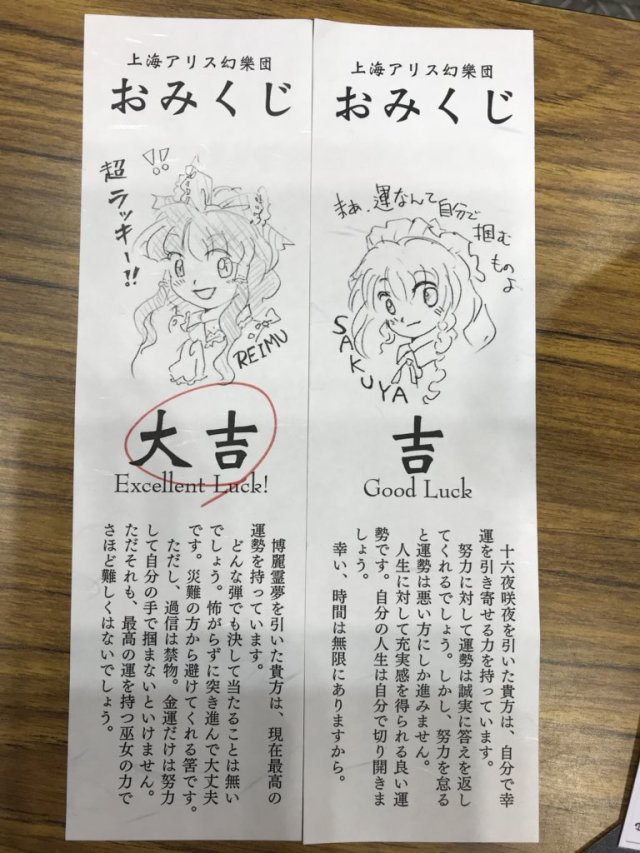 上海アリス幻樂団
おみくじ
超ラッキー!!
!!
REIMU
大吉
Excellent Luck!
博麗霊夢を引いた貴方は、現在最高の
運勢を持っています。
どんな弾でも決して当たることは無い
でしょう。怖がらずに突き進んで大丈夫
です。災難の方から避けてくれる筈です。
ただし、過信は禁物。金運だけは努力
して自分の手で掴まないといけません。
ただそれも、最高の運を持つ巫女の力で
さほど難しくはないでしょう。
上海アリス幻樂団
おみくじ
まぁ、運なんて自分で
掴む
ものよ
SAKUYA
吉
Good Luck
十六夜咲夜を引いた貴方は、自分で幸
運を引き寄せる力を持っています。
努力に対して運勢は誠実に答えを返し
てくれるでしょう。しかし、努力を怠る
と運勢は悪い方にしか進みません。
人生に対して充実感を得られる良い運
勢です。自分の人生は自分で切り開きま
しょう。
幸い、時間は無限にありますから。